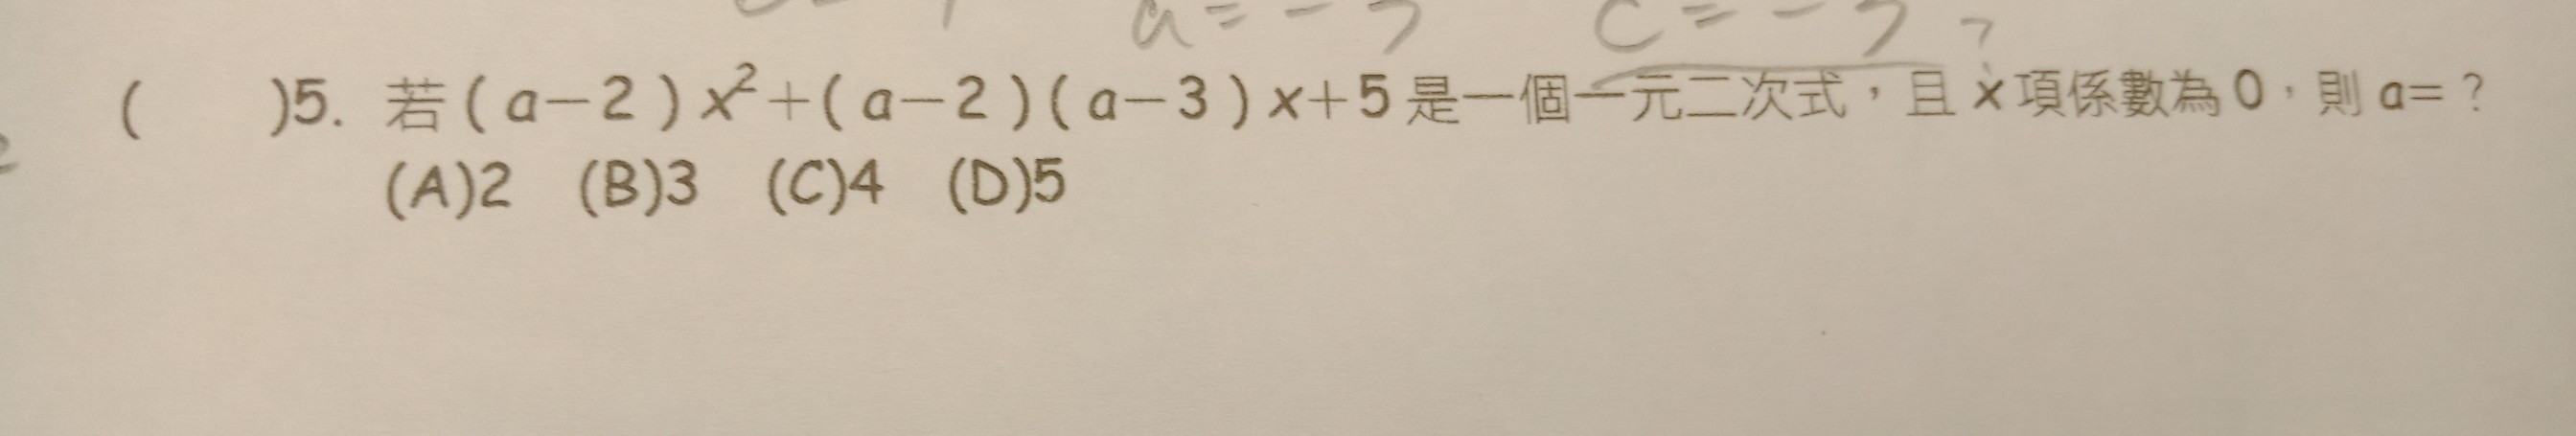 a = -
c = -
( )5. 若(a-2)x²+(a-2)(a-3)x+5是一個一元二次式，且x項係數為0，則a=？
(A)2 (B)3 (C)4 (D)5